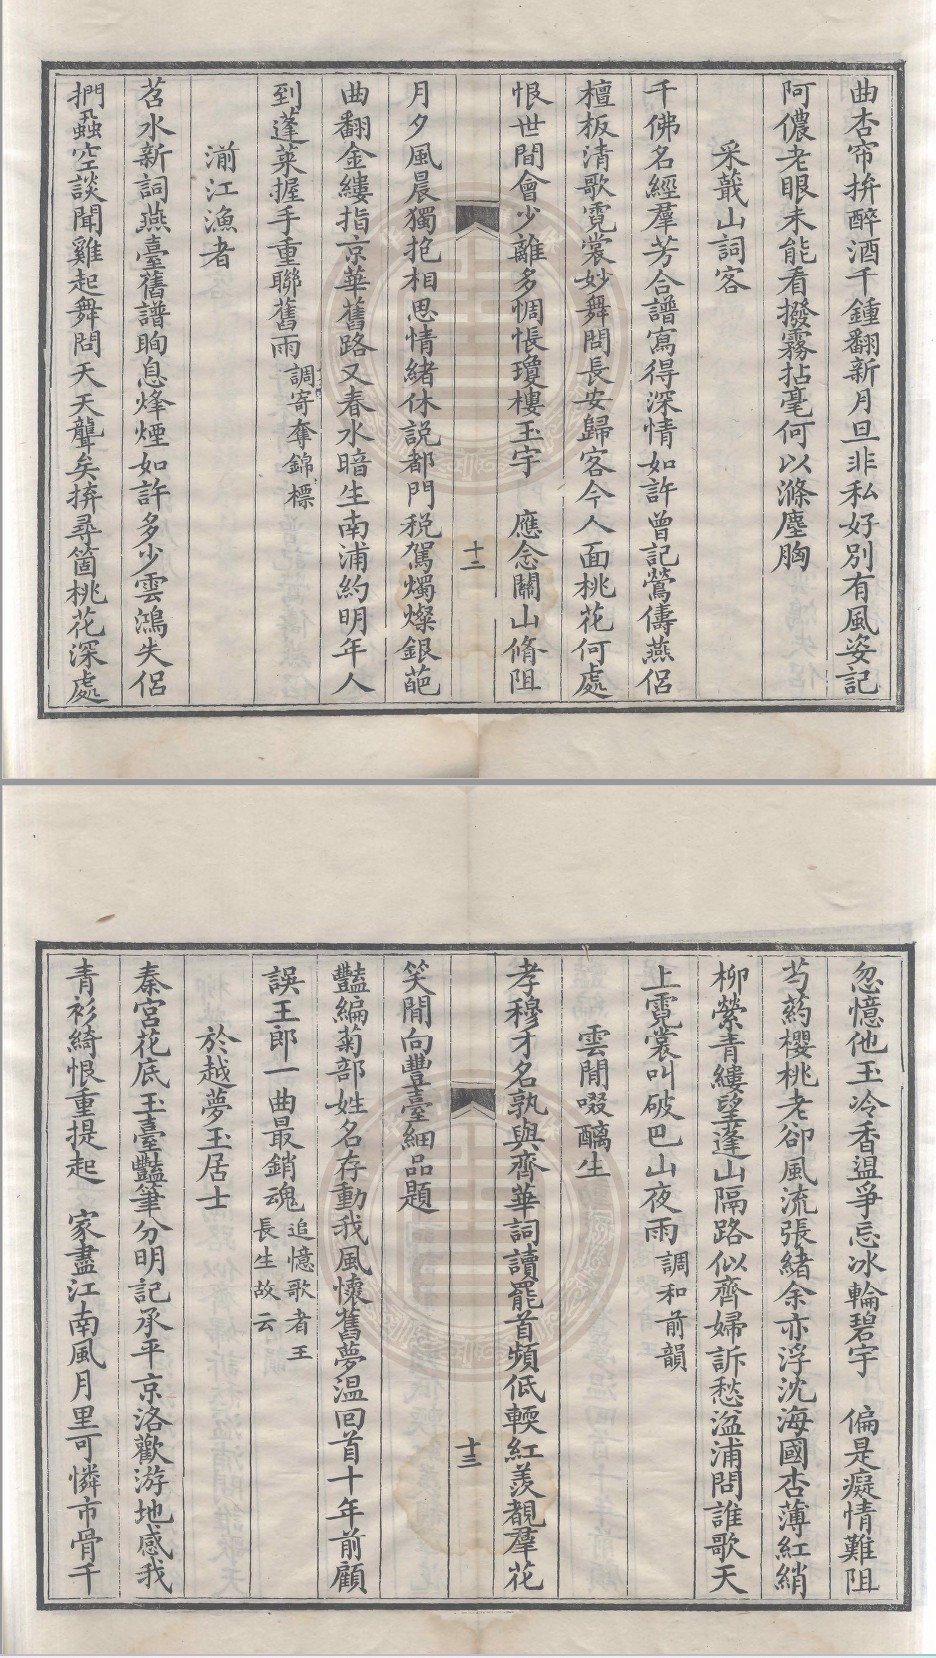 曲杏帘拚醉酒千鍾翻新月旦非私好別有風姿記
阿儂老眼未能看撥霧拈毫何以滌塵胸
采蕺山詞客
千佛名經羣芳合譜寫得深情如許曾記鶯儔燕侶
檀板清歌霓裳妙舞問長安歸客今人面桃花何處
恨世間會少離多惆悵瓊樓玉宇　應念關山脩阻
十二
月夕風晨獨抱相思情緒休説都門税駕燭燦銀葩
曲翻金縷指京華舊路又春水暗生南浦約明年人
到蓬萊握手重聯舊雨調寄奪錦標
湔江漁者
苕水新詞燕臺舊譜眴息烽煙如許多少雲鴻失侶
捫蝨空談聞雞起舞問天天聾矣拚尋箇桃花深處
忽憶他玉冷香溫爭忘冰輪碧宇　偏是癡情難阻
芍葯櫻桃老卻風流張緒余亦浮沈海國杏薄紅綃
柳縈青縷望蓬山隔路似齊婦訴愁湓浦問誰歌天
上霓裳叫破巴山夜雨調和前韻
雲閒啜醨生
孝穆才名孰與齊華詞讀罷首頻低輭紅羨覩羣花
十三
笑閒向豐臺細品題
豔編菊部姓名存動我風懷舊夢溫回首十年前顧
誤王郎一曲最銷魂追憶歌者王
長生故云
於越夢玉居士
秦宮花底玉臺豔筆分明記承平京洛歡游地感我
青衫綺恨重提起　家盡江南風月里可憐市骨千